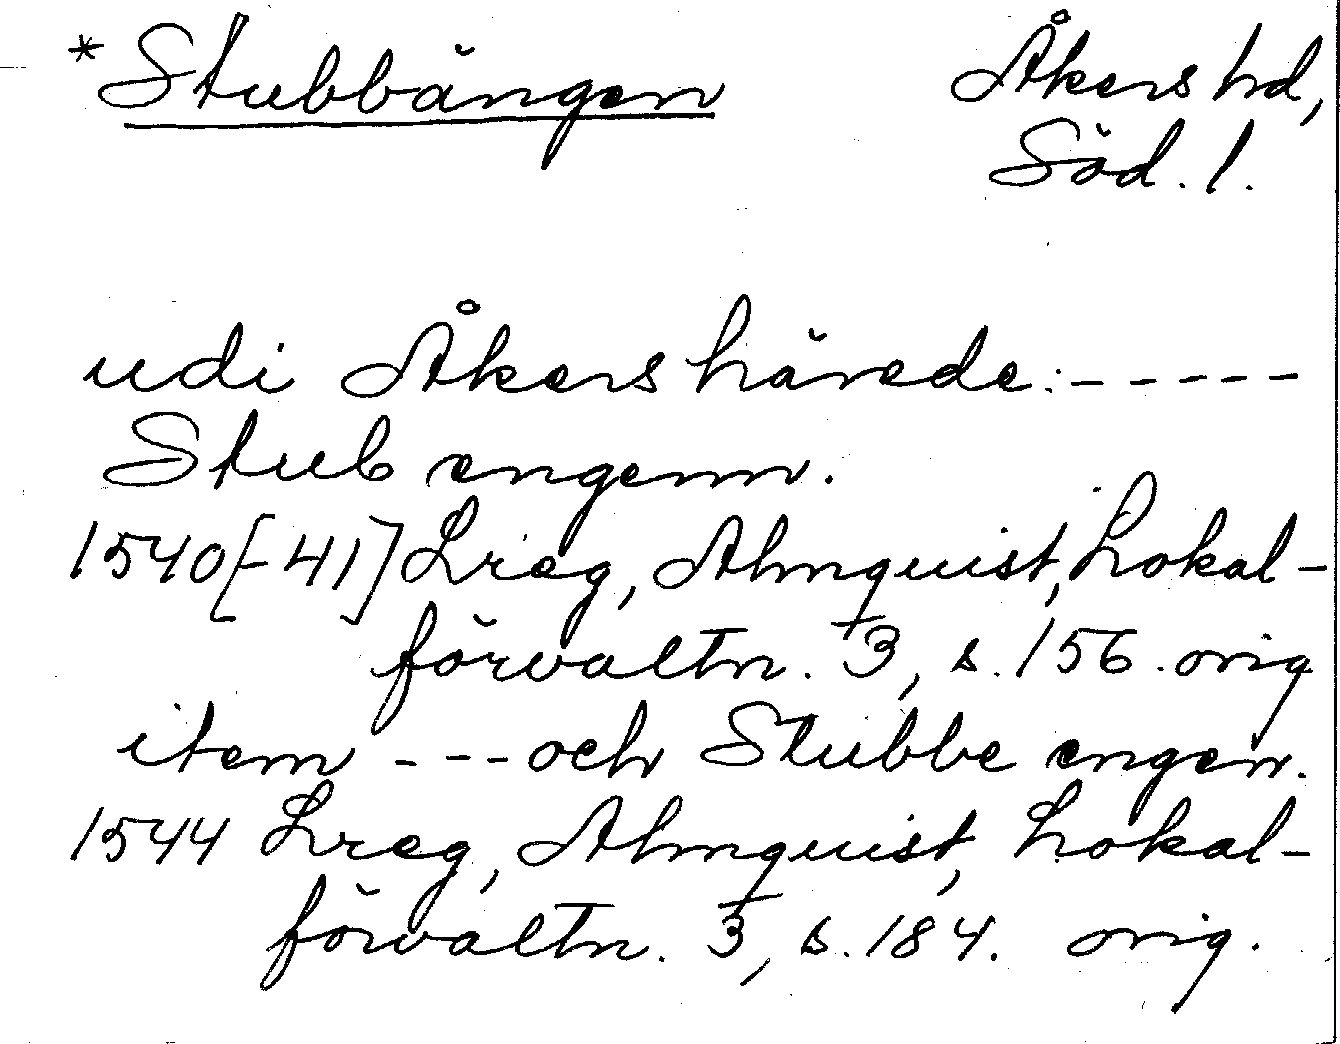 *Stubbängen Åkers hd,
Söd. l.
udi Åkers härede: - - - - -
Stub engenn.
1540[-41] Lreg, Almquist, Lokal-
förvaltn. 3, s. 156. orig
item - - - och Stubbe engen.
1544 Lreg, Almquist, Lokal-
förvaltn. 3, s. 184. orig.